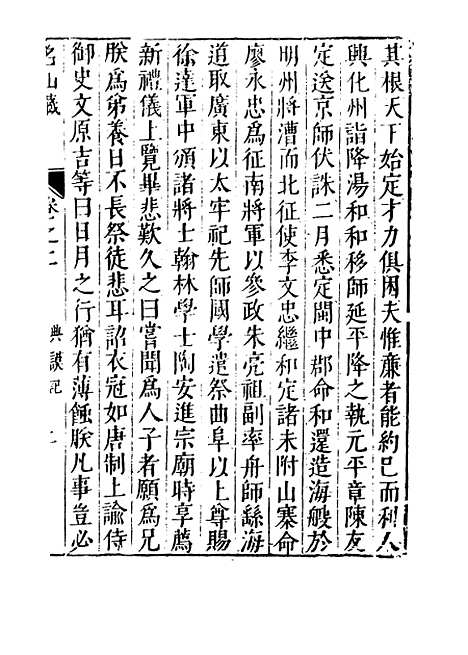 其根天下始定才力俱困夫惟廉者能約巳而利人
興化州詣降湯和和移師延平降之執元平章陳友
定送京師伏誅二月悉定閩中郡命和還造海艘於
明州將漕而北征使李文忠繼和定諸未附山寨命
廖永忠爲征南將軍以參政朱亮祖副率舟師繇海
道取廣東以太牢祀先師國學遣祭曲阜以上尊賜
徐達軍中頒諸將士翰林學士陶安進宗廟時享薦
新禮儀上覽畢悲歎久之曰嘗聞爲人子者願爲兄
朕爲弟養日不長祭徒悲耳詔衣冠如唐制上諭侍
御史文原吉等曰日月之行猶有薄蝕朕凡事豈必
名山藏 卷之二 典謨記